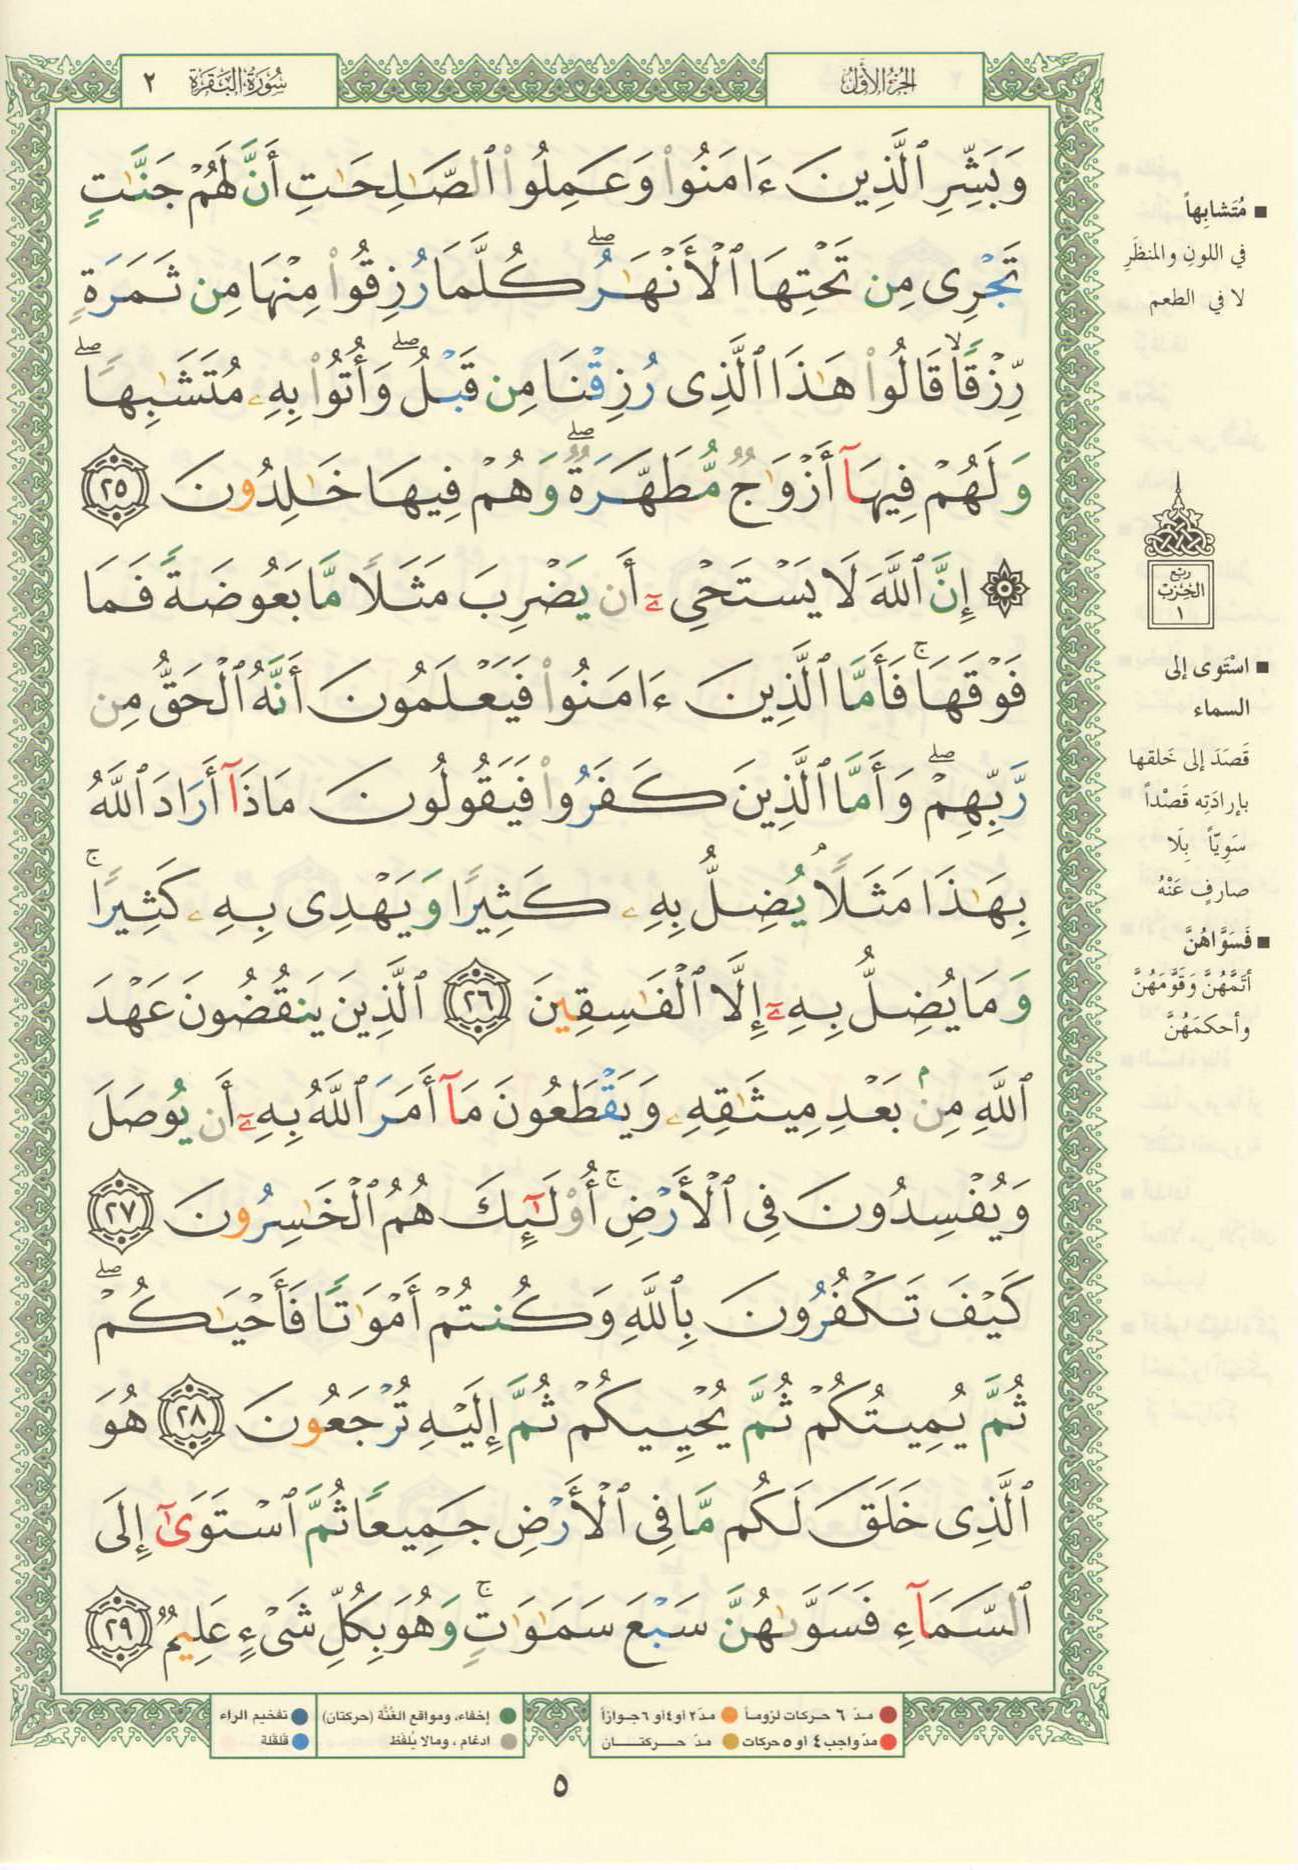 سُورَةُ البَقَرَة ٢
الجُزءُ الأوَّلُ
وَبَشِّرِ ٱلَّذِينَ ءَامَنُوا۟ وَعَمِلُوا۟ ٱلصَّـٰلِحَـٰتِ أَنَّ لَهُمْ جَنَّـٰتٍ
تَجْرِى مِن تَحْتِهَا ٱلْأَنْهَـٰرُ ۖ كُلَّمَا رُزِقُوا۟ مِنْهَا مِن ثَمَرَةٍ
رِّزْقًا ۙ قَالُوا۟ هَـٰذَا ٱلَّذِى رُزِقْنَا مِن قَبْلُ ۖ وَأُتُوا۟ بِهِۦ مُتَشَـٰبِهًا ۖ
وَلَهُمْ فِيهَآ أَزْوَٰجٌ مُّطَهَّرَةٌ ۖ وَهُمْ فِيهَا خَـٰلِدُونَ ٢٥
۞ إِنَّ ٱللَّهَ لَا يَسْتَحْىِۦٓ أَن يَضْرِبَ مَثَلًا مَّا بَعُوضَةً فَمَا
فَوْقَهَا ۚ فَأَمَّا ٱلَّذِينَ ءَامَنُوا۟ فَيَعْلَمُونَ أَنَّهُ ٱلْحَقُّ مِن
رَّبِّهِمْ ۖ وَأَمَّا ٱلَّذِينَ كَفَرُوا۟ فَيَقُولُونَ مَاذَآ أَرَادَ ٱللَّهُ
بِهَـٰذَا مَثَلًا ۘ يُضِلُّ بِهِۦ كَثِيرًا وَيَهْدِى بِهِۦ كَثِيرًا ۚ
وَمَا يُضِلُّ بِهِۦٓ إِلَّا ٱلْفَـٰسِقِينَ ٢٦ ٱلَّذِينَ يَنقُضُونَ عَهْدَ
ٱللَّهِ مِنۢ بَعْدِ مِيثَـٰقِهِۦ وَيَقْطَعُونَ مَآ أَمَرَ ٱللَّهُ بِهِۦٓ أَن يُوصَلَ
وَيُفْسِدُونَ فِى ٱلْأَرْضِ ۚ أُو۟لَـٰٓئِكَ هُمُ ٱلْخَـٰسِرُونَ ٢٧
كَيْفَ تَكْفُرُونَ بِٱللَّهِ وَكُنتُمْ أَمْوَٰتًا فَأَحْيَـٰكُمْ ۖ
ثُمَّ يُمِيتُكُمْ ثُمَّ يُحْيِيكُمْ ثُمَّ إِلَيْهِ تُرْجَعُونَ ٢٨ هُوَ
ٱلَّذِى خَلَقَ لَكُم مَّا فِى ٱلْأَرْضِ جَمِيعًا ثُمَّ ٱسْتَوَىٰٓ إِلَى
ٱلسَّمَآءِ فَسَوَّىٰهُنَّ سَبْعَ سَمَـٰوَٰتٍ ۚ وَهُوَ بِكُلِّ شَىْءٍ عَلِيمٌ ٢٩
■ مُتَشابِهاً
في اللونِ والمنظَرِ
لا في الطعم
ربع
الحِزْب
١
■ اسْتَوى إلى
السماء
قَصَدَ إلى خَلقها
بإرادَتِه قَصْداً
سَوِيّاً بِلَا
صارفٍ عَنْهُ
■ فَسَوَّاهُنَّ
أتَمَّهُنَّ وَقَوَّمَهُنَّ
وأحكمَهُنَّ
مدّ ٦ حركات لزوماً مدّ٢ أو٤أو ٦جوازاً
مدّ واجب ٤ أو ٥ حركات مدّ حركتان
إخفاء، ومواقع الغُنَّة (حركتان)
ادغام ، ومالا يُلفَظ
تفخيم الراء
قلقلة
٥